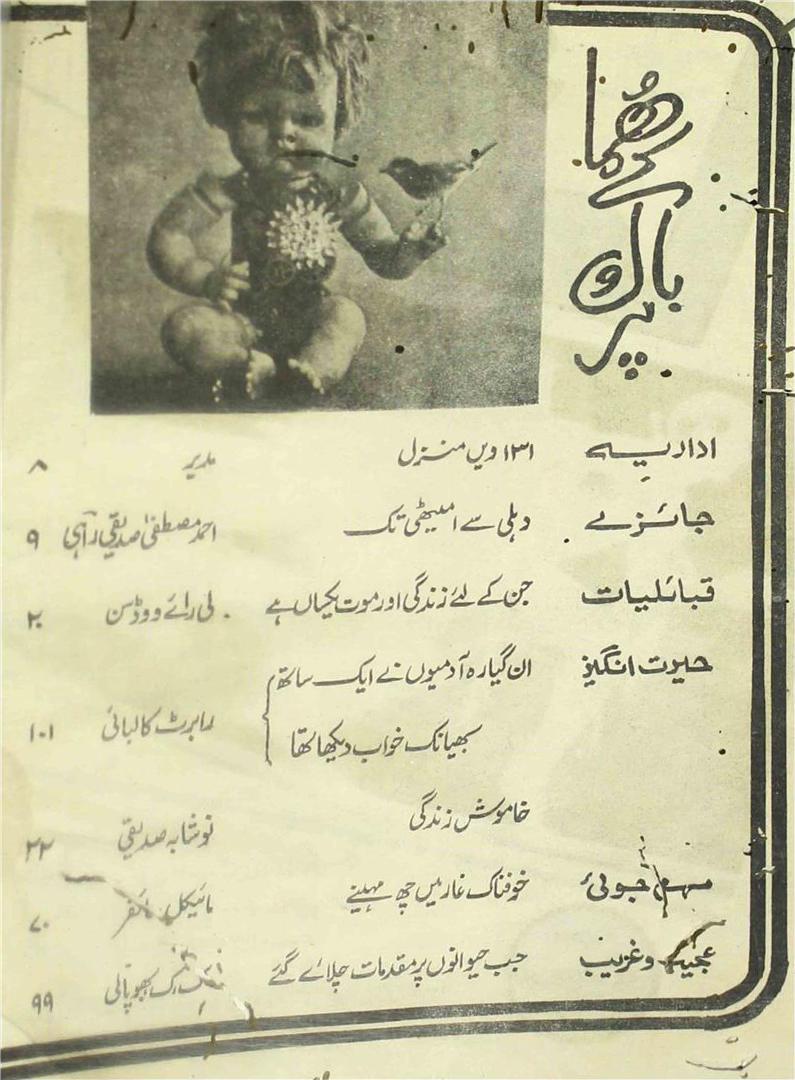 ھُما
کے
بال و
پر
اداریہ ۱۳۱ ویں منزل مدیر ۸
جائزے دہلی سے امیٹھی تک احمد مصطفیٰ صدیقی راہی ۹
قبائلیات جن کے لئے زندگی اور موت یکساں ہے لی رائے ووڈسن ۲۰
حیرت انگیز ان گیارہ آدمیوں نے ایک ساتھ
بھیانک خواب دیکھا تھا رابرٹ کالبائی ۱۰۱
خاموش زندگی نوشابہ صدیقی ۲۲
مہم جوئی خوفناک غار میں چھ مہینے مائیکل ۷۰
عجیب و غریب جب حیوانوں پر مقدمات چلائے گئے بھوپالی ۹۹